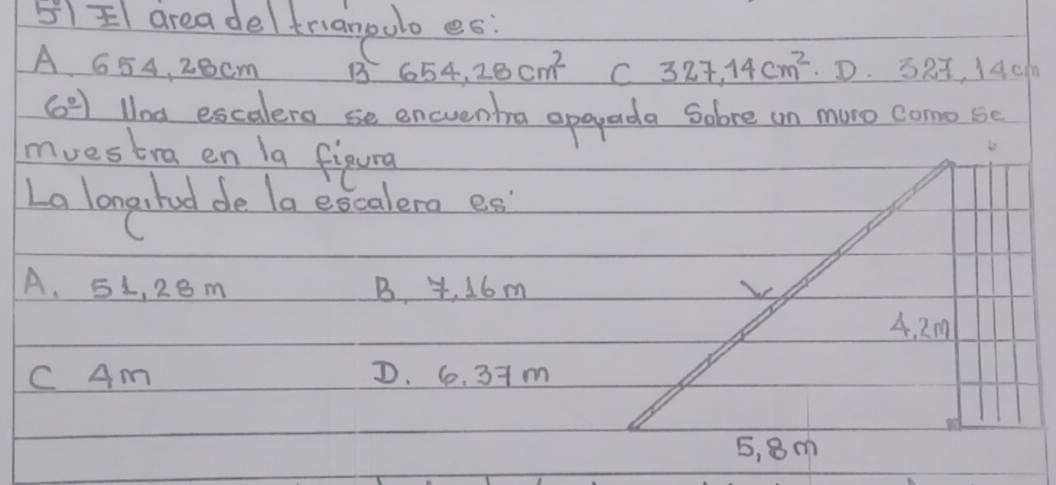 5º) El area del triangulo es:
A. 654,28cm B 654,28cm² C 327,14cm². D. 327,14cm
6º) Una escalera se encuentra apoyada Sobre un muro como se
muestra en la figura
La longitud de la escalera es:
A. 51,28m B. 7,16m
4,2m
C 4m D. 6,37m
5,8m